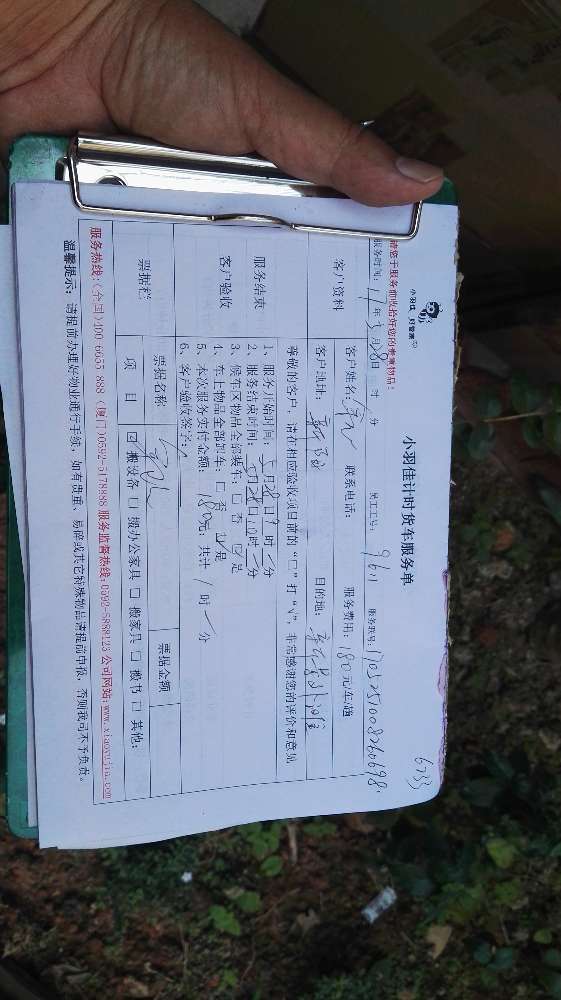 6233
小羽佳 好管家
请您于服务前收拾好您的贵重物品!
小羽佳计时货车服务单
服务时间: 17年5月28日 时 分 员工工号: 9611 服务账号: 1705251008260698
客户资料
客户姓名: 联系电话: 服务费用: 180元/车/趟
客户地址: 目的地:
尊敬的客户,请在相应验收项目前的“□”打“√”,非常感谢您的评价和意见
服务结束
客户验收
1、服务开始时间: 5月28日9时 分
2、服务结束时间: 5月28日10时 分
3、候车区物品全部装车: □ 否 ☑ 是
4、车上物品全部卸车: □ 否 ☑ 是
5、本次服务实付金额: 180元, 共计 1 时 分
6、客户验收签字:
票据栏 票据名称 票据金额
项 目 ☑ 搬设备 □ 搬办公家具 □ 搬家具 □ 搬书 □ 其他:
服务热线:(全国)400 6655 888 (厦门)0592-5178888 服务监督热线:0592-5888123 公司网站:www.xiaoyujia.com
温馨提示: 请提前办理好物业通行手续, 如有贵重、易碎或其它特殊物品请提前申报, 否则我司不予负责。